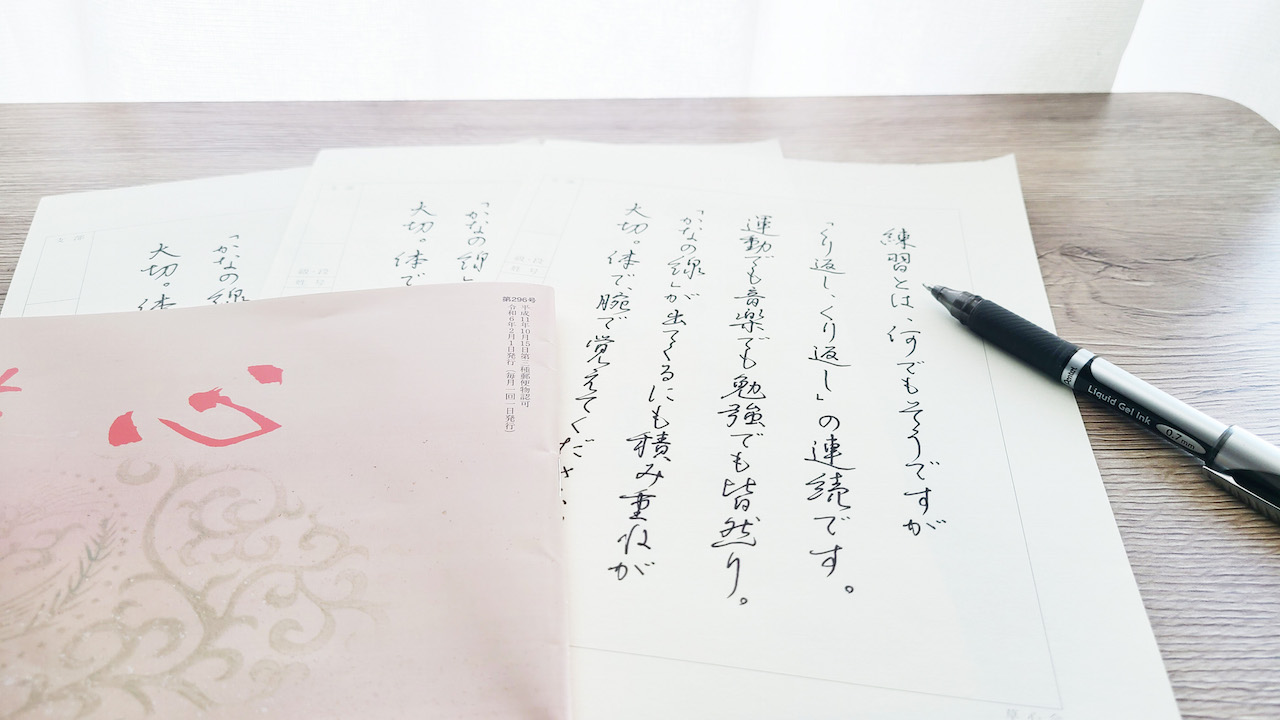 練習とは、何でもそうですが
「くり返し、くり返し」の連続です。
運動でも音楽でも勉強でも皆然り。
「かなの線」が出てくるにも積み重ねが
大切。体で、腕で覚えてくださ
「かなの線」
大切。体で
「かなの線
大切。体
第296号
平成11年10月15日第三種郵便物認可
令和6年2月1日発行(毎月一回一日発行)
心
Pentel
Liquid Gel Ink
0.7mm